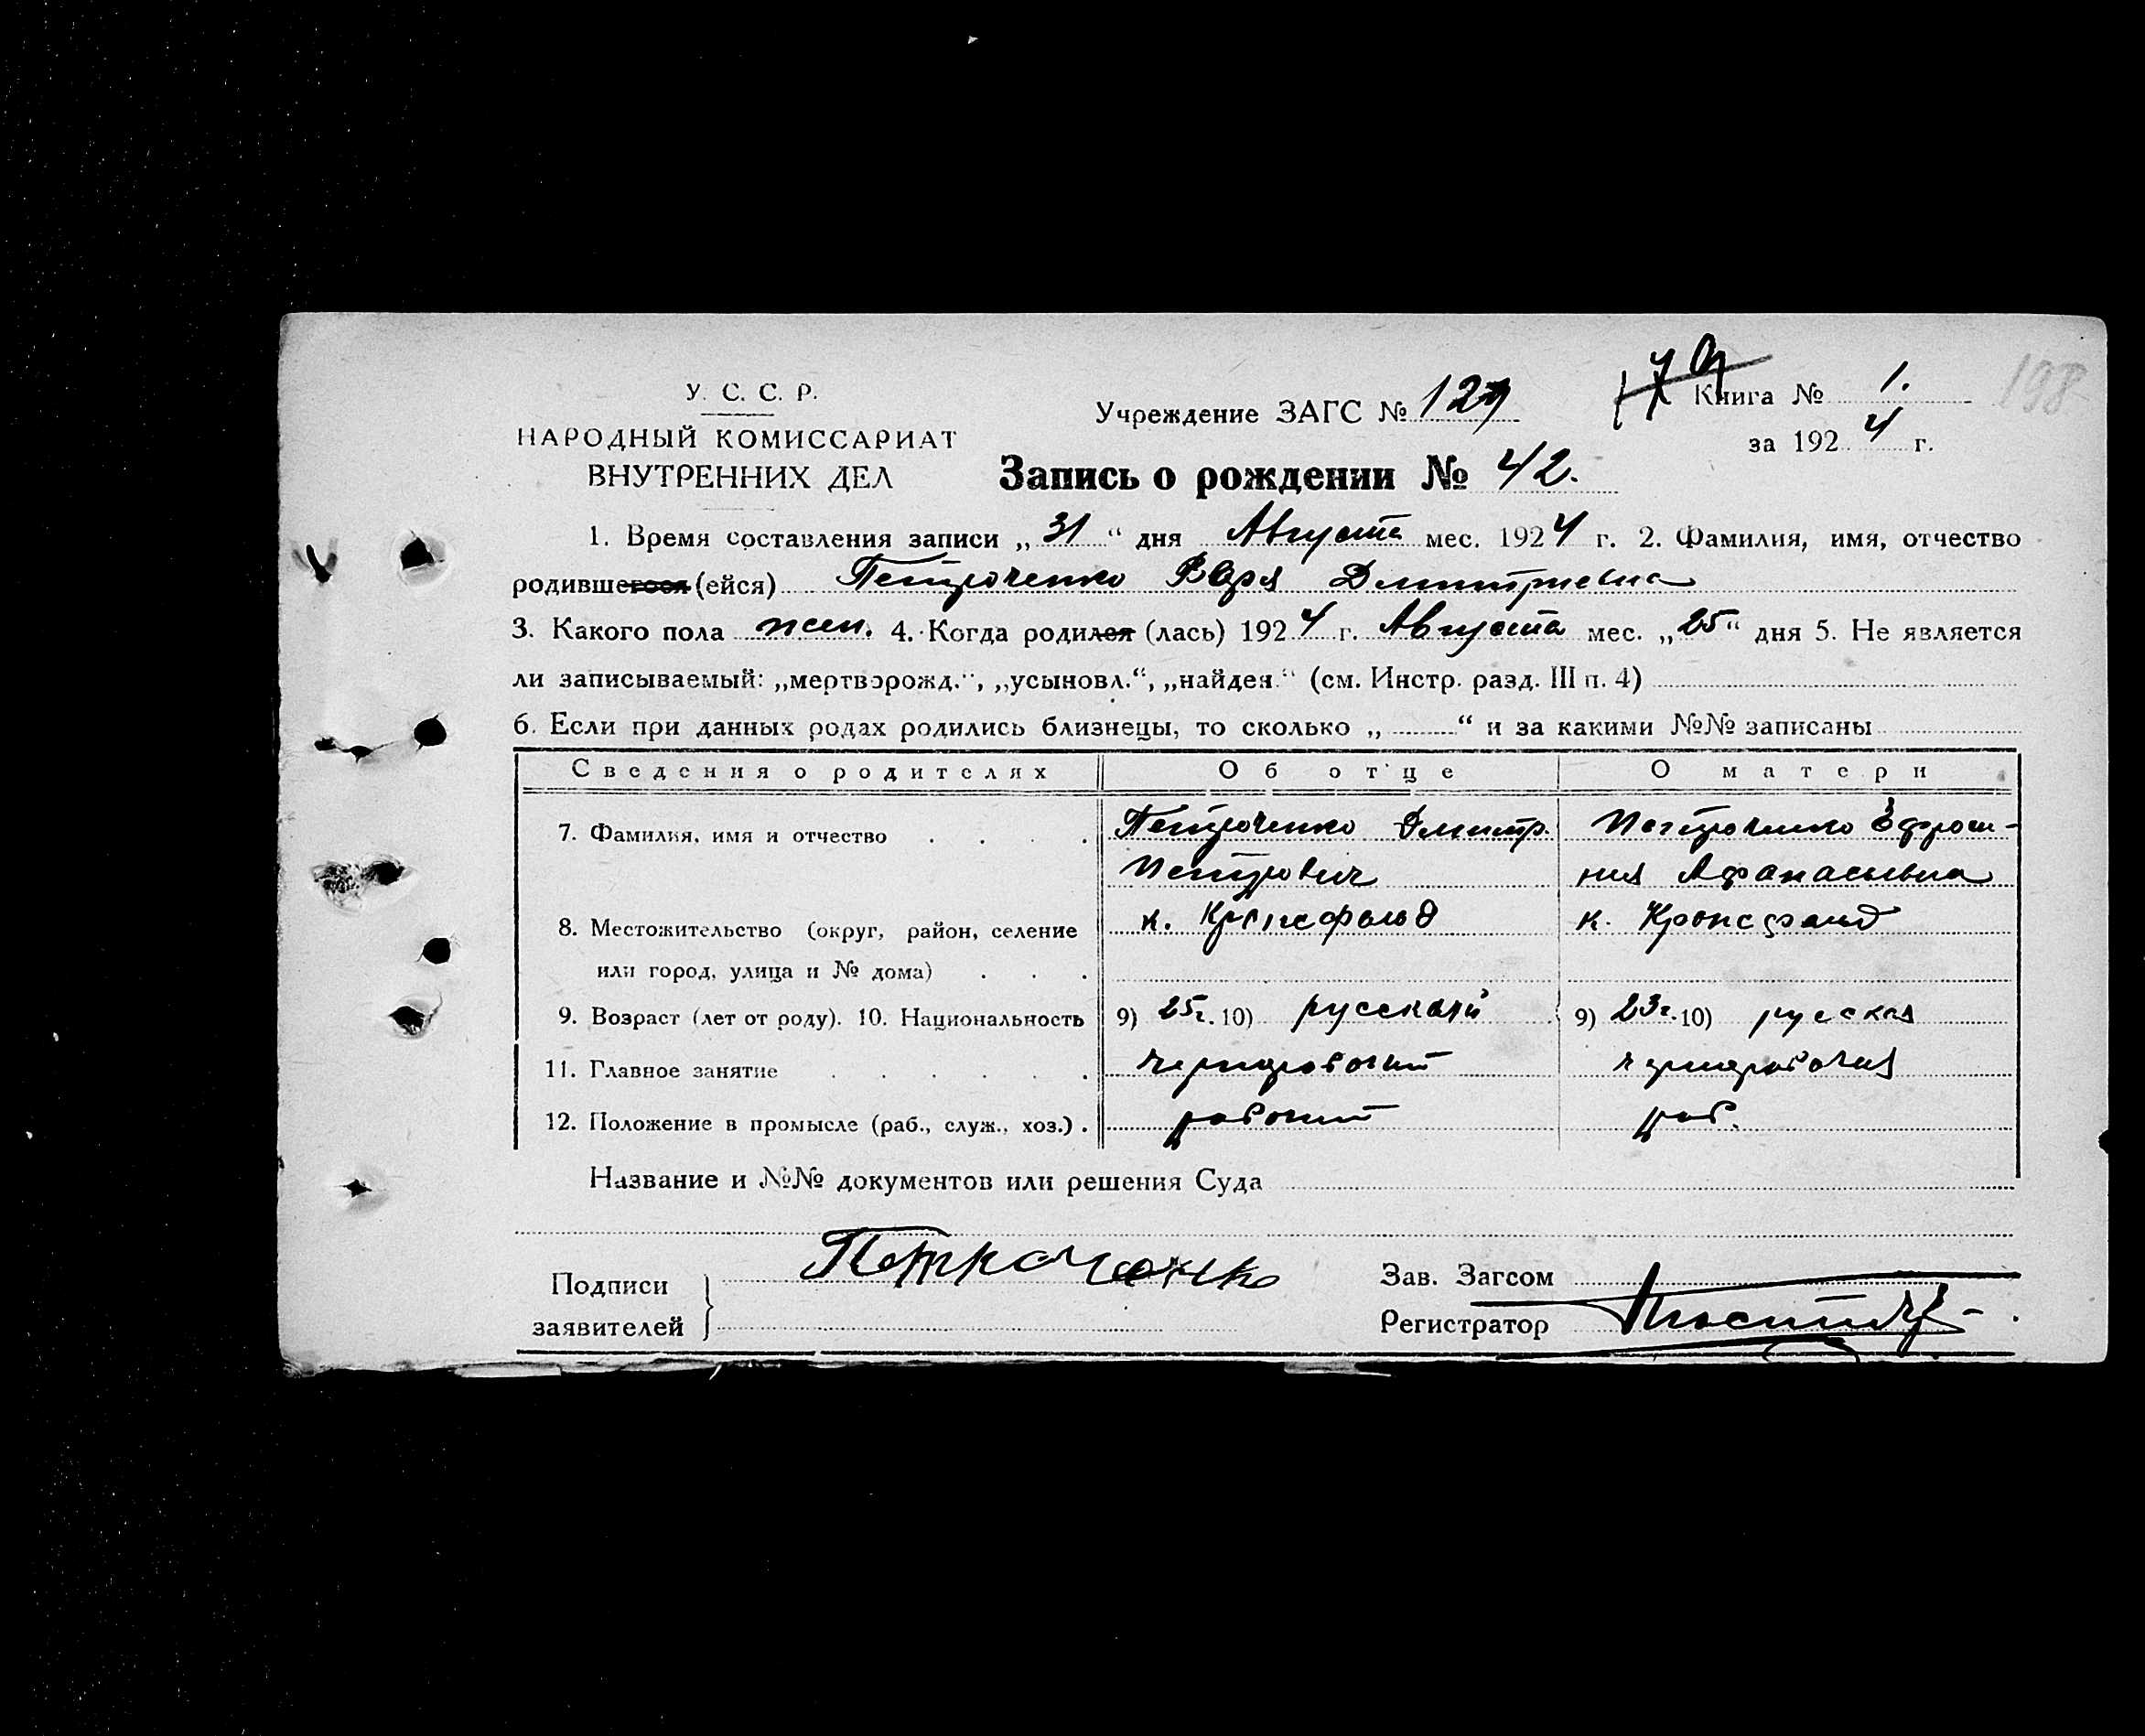 У. С. С. Р.
НАРОДНЫЙ КОМИССАРИАТ
ВНУТРЕННИХ ДЕЛ
Учреждение ЗАГС № 127
179
Книга № 1.
198
за 1924 г.
Запись о рождении № 42.
1. Время составления записи „31“ дня Августа мес. 1924 г. 2. Фамилия, имя, отчество
родившегося (ейся) Петроченко Варя Дмитриевна
3. Какого пола жен. 4. Когда родился (лась) 1924 г. Августа мес. „25“ дня 5. Не является
ли записываемый: „мертворожд.“, „усыновл.“, „найден.“ (см. Инстр. разд. III п. 4)
6. Если при данных родах родились близнецы, то сколько „ “ и за какими №№ записаны
Сведения о родителях Об отце О матери
7. Фамилия, имя и отчество Петроченко Дмитр. Петроченко Ефроси-
Петрович ния Афанасьевна
8. Местожительство (округ, район, селение к. Кронсфельд к. Кронсфельд
или город, улица и № дома)
9. Возраст (лет от роду). 10. Национальность 9) 25 г. 10) русский 9) 23 г. 10) русская
11. Главное занятие чернорабочий чернорабочая
12. Положение в промысле (раб., служ., хоз.) рабочий раб.
Название и №№ документов или решения Суда
Подписи Петроченко Зав. Загсом
заявителей Регистратор